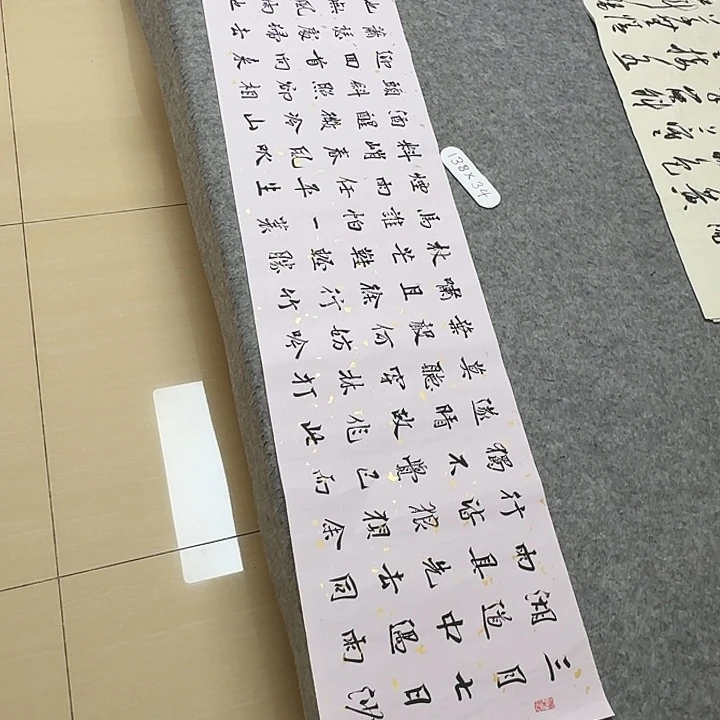 三月七日沙
湖道中遇雨
雨具先去同
行皆狼狽余
獨不覺已而
遂晴故作此
莫聽穿林打
葉聲何妨吟
嘯且徐行竹
杖芒鞋輕勝
馬誰怕一蓑
煙雨任平生
料峭春風吹
酒醒微冷山
頭斜照卻相
迎回首向來
蕭瑟處歸去
也無風雨也
138×34